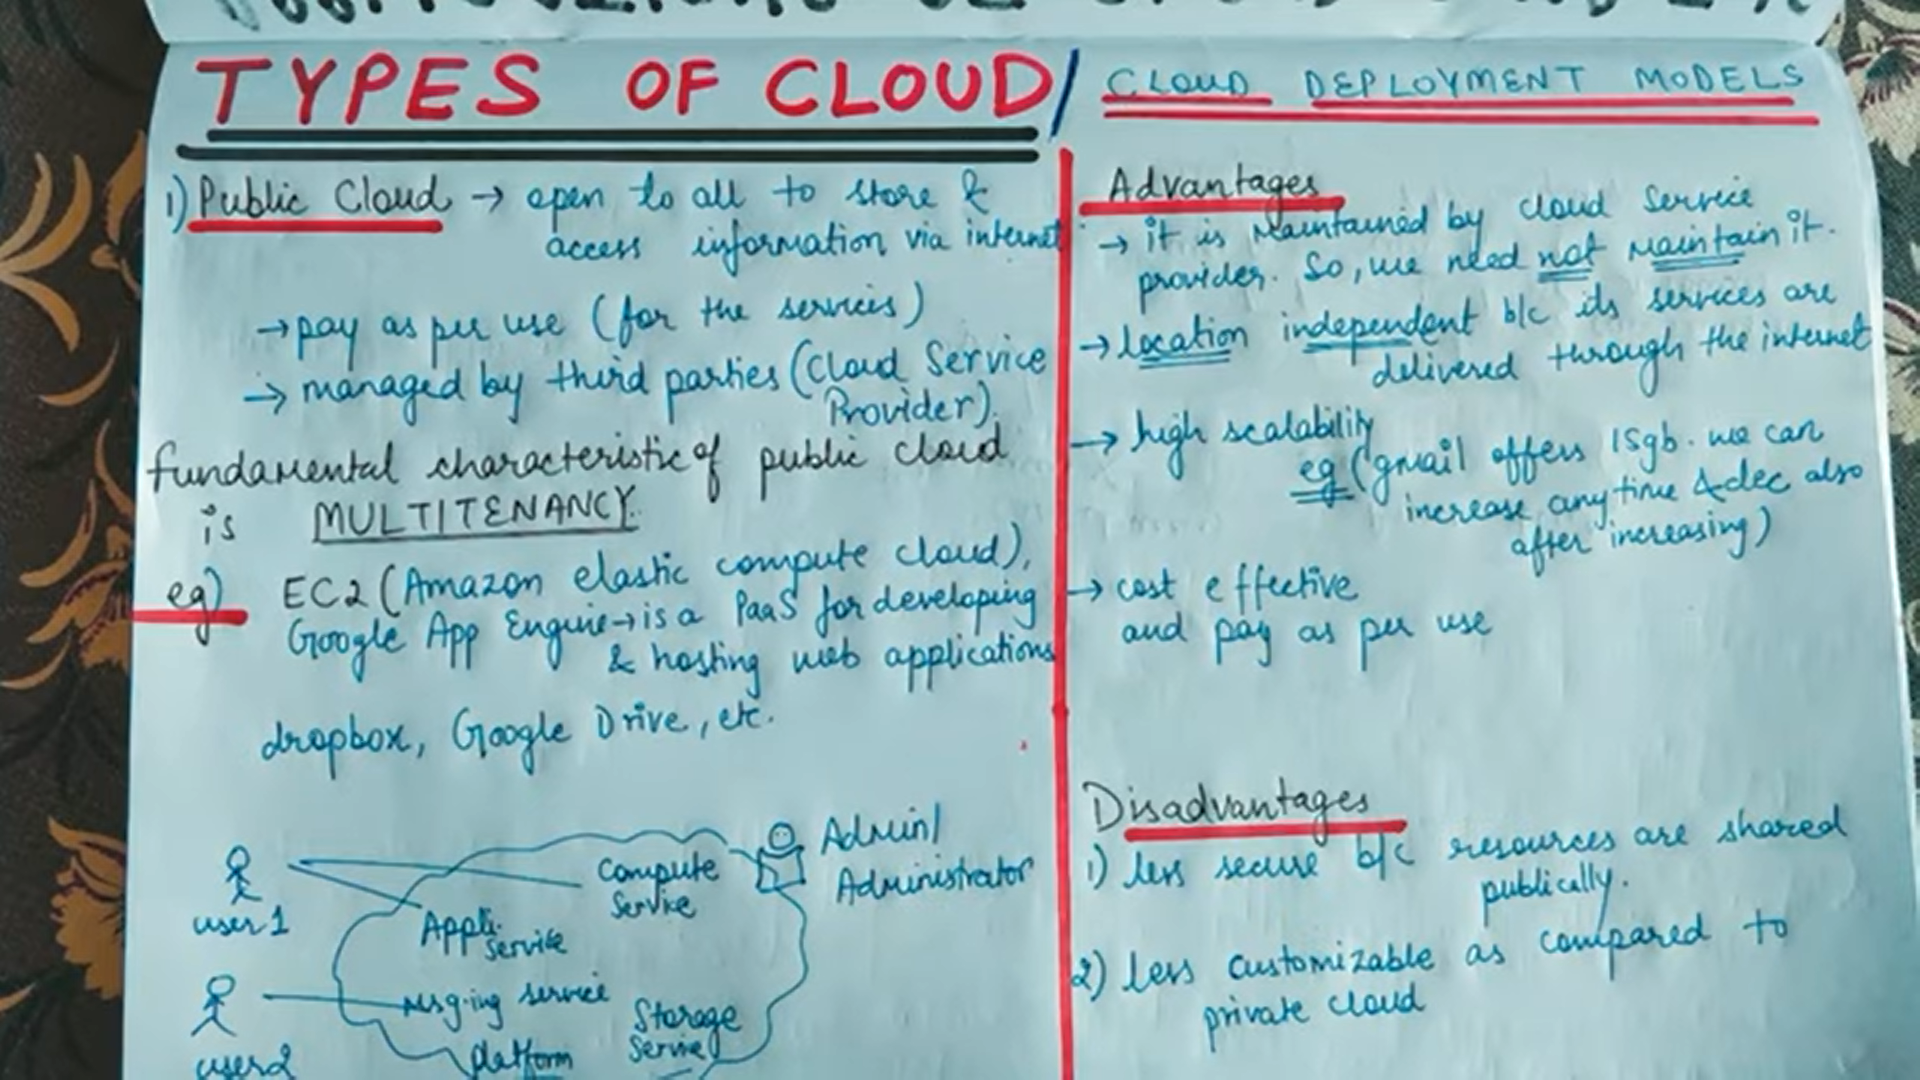 TYPES OF CLOUD / CLOUD DEPLOYMENT MODELS
1) Public Cloud → open to all to store &
access information via internet
→ pay as per use (for the services)
→ managed by third parties (Cloud Service
Provider).
fundamental characteristic of public cloud
is MULTITENANCY.
eg) EC2 (Amazon elastic compute cloud),
Google App Engine → is a PaaS for developing
& hosting web applications
dropbox, Google Drive, etc.
user1
Appli. Service
Compute Service
Admin/
Administrator
user2
msg-ing service
platform
Storage
Service
Advantages
→ it is maintained by cloud service
provider. So, we need not maintain it.
→ location independent b/c its services are
delivered through the internet
→ high scalability
eg (gmail offers 15gb. we can
increase anytime & dec also
after increasing)
→ cost effective
and pay as per use
Disadvantages
1) less secure b/c resources are shared
publically.
2) less customizable as compared to
private cloud